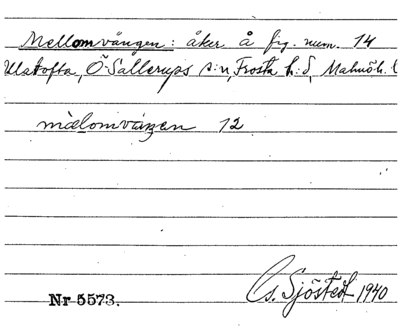 Mellomvången: åker å fig. num. 14
Ulatofta, Ö. Sallerups s:n, Frosta h:d, Malmöh. l
mälomvången 12
Nr 5573.
Cs. Sjöstedt 1940